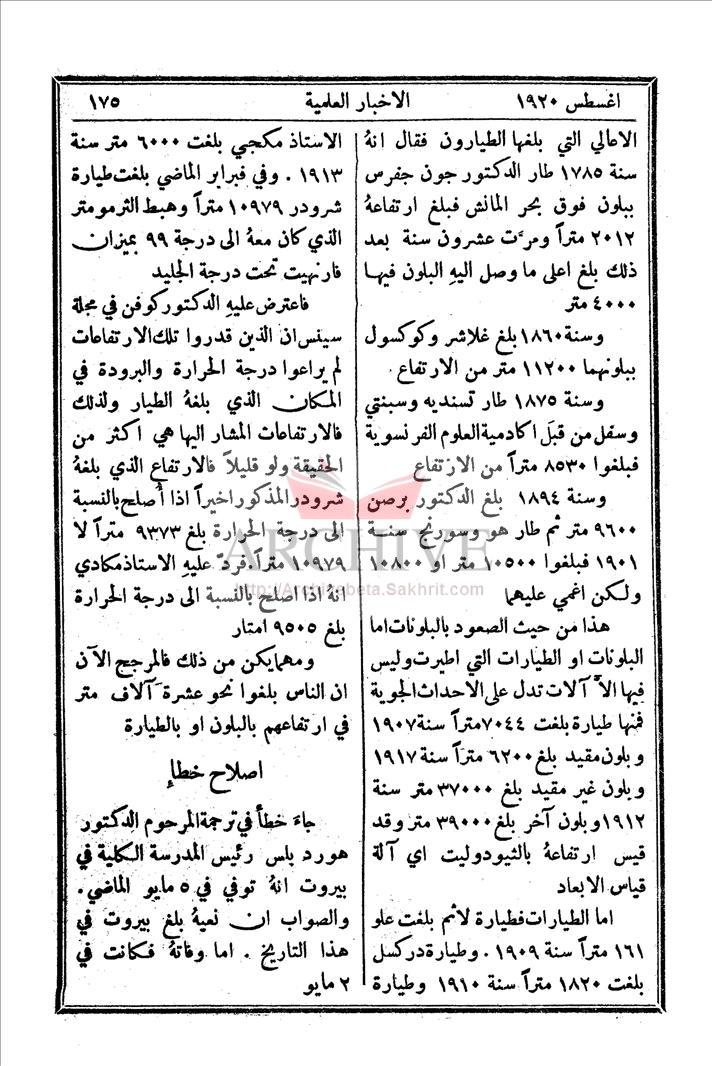 اغسطس ١٩٢٠
الاخبار العلمية
١٧٥
الاعالي التي بلغها الطيارون فقال انهُ
سنة ١٧٨٥ طار الدكتور جون جفرس
ببلون فوق بحر المانش فبلغ ارتفاعهُ
٢٠١٢ متراً ومرَّت عشرون سنة بعد
ذلك بلغ اعلى ما وصل اليه البلون فيها
٤٠٠٠ متر
وسنة ١٨٦٠ بلغ غلاشر وكوكسول
ببلونهما ١١٢٠٠ متر من الارتفاع
وسنة ١٨٧٥ طار تسنديه وسبنتي
وسفل من قبَل اكادمية العلوم الفرنسوية
فبلغوا ٨٥٣٠ متراً من الارتفاع
وسنة ١٨٩٤ بلغ الدكتور برصن
٩٦٠٠ متر ثم طار هو وسورنج سنة
١٩٠١ فبلغوا ١٠٥٠٠ متر او ١٠٨٠٠
ولكن اغمي عليهما
هذا من حيث الصعود بالبلونات اما
البلونات او الطيارات التي اطيرت وليس
فيها الاَّ آلات تدل على الاحداث الجوية
فمنها طيارة بلغت ٧٠٤٤ متراً سنة ١٩٠٧
وبلون مقيد بلغ ٦٢٠٠ متراً سنة ١٩١٧
وبلون غير مقيد بلغ ٣٧٠٠٠ متر سنة
١٩١٢ وبلون آخر بلغ ٣٩٠٠٠ متر وقد
قيس ارتفاعهُ بالثيودوليت اي آلة
قياس الابعاد
اما الطيارات فطيارة لاثم بلغت علو
١٦١ متراً سنة ١٩٠٩ . وطيارة دركسل
بلغت ١٨٢٠ متراً سنة ١٩١٠ وطيارة
الاستاذ مكجي بلغت ٦٠٠٠ متر سنة
١٩١٣ . وفي فبراير الماضي بلغت طيارة
شرودر ١٠٩٧٩ متراً وهبط الثرمومتر
الذي كان معهُ الى درجة ٩٩ بميزان
فارنهيت تحت درجة الجليد
فاعترض عليهِ الدكتور كوفن في مجلة
سينس ان الذين قدروا تلك الارتفاعات
لم يراعوا درجة الحرارة والبرودة في
المكان الذي بلغهُ الطيار ولذلك
فالارتفاعات المشار اليها هي اكثر من
الحقيقة ولو قليلاً فالارتفاع الذي بلغهُ
شرودر المذكور اخيراً اذا أصلح بالنسبة
الى درجة الحرارة بلغ ٩٣٧٣ متراً لا
١٠٩٧٩ متراً . فردَّ عليهِ الاستاذ مكادي
انهُ اذا اصلح بالنسبة الى درجة الحرارة
بلغ ٩٥٠٥ امتار
ومهما يكن من ذلك فالمرجح الآن
ان الناس بلغوا نحو عشرة آلاف متر
في ارتفاعهم بالبلون او بالطيارة
اصلاح خطإ
جاءَ خطأ في ترجمة المرحوم الدكتور
هورد بلس رئيس المدرسة الكلية في
بيروت انهُ توفي في ٥ مايو الماضي .
والصواب ان نعيهُ بلغ بيروت في
هذا التاريخ . اما وفاتهُ فكانت في
٢ مايو
ARCHIVE
http://Archivebeta.Sakhrit.com